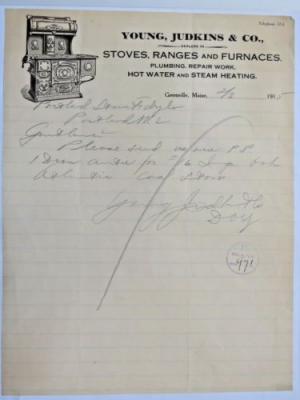 Telephone
YOUNG, JUDKINS & CO.,
DEALERS IN
STOVES, RANGES AND FURNACES.
PLUMBING, REPAIR WORK,
HOT WATER AND STEAM HEATING.
Greenville, Maine, 191
Portland Stove Fdy Co
Portland Me
Gentlemen
Please send us via P.P.
1 Door for
Atlantic Coal Stove
Young Judkins Co
971